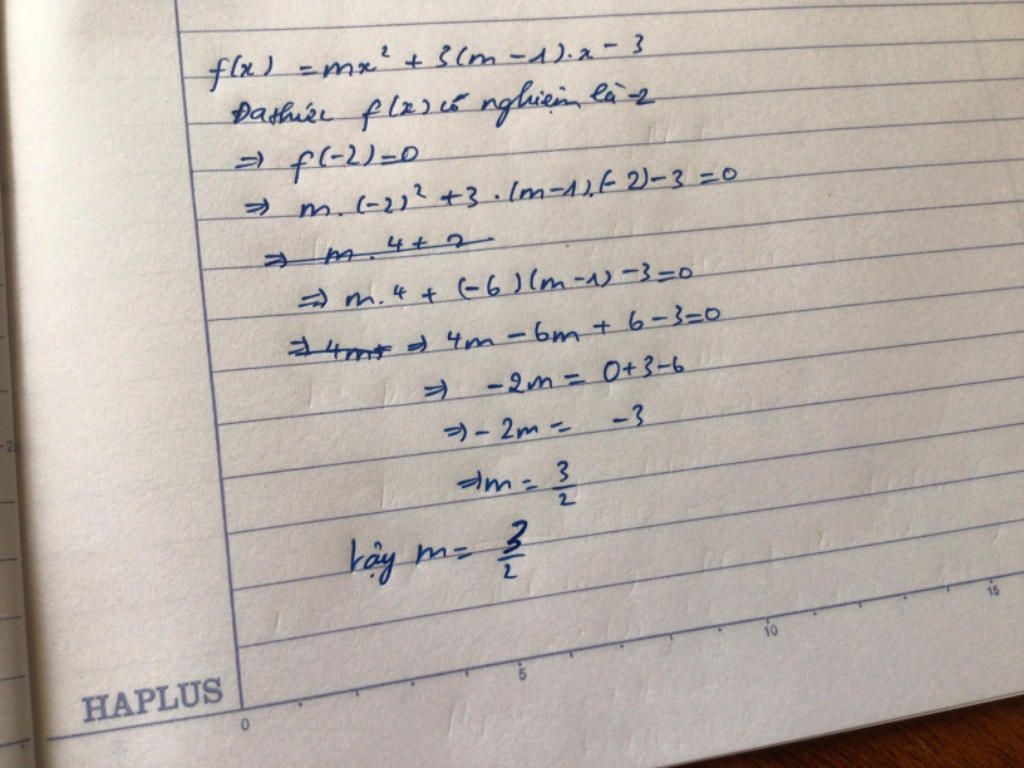 f(x) = mx² + 3(m - 1).x - 3
Đa thức f(x) có nghiệm là -2
=> f(-2)=0
=> m.(-2)² +3.(m-1).(-2)-3=0
=> m.4+2
=> m.4 + (-6)(m-1)-3=0
=> 4m+ => 4m-6m+6-3=0
=> -2m= 0+3-6
=> -2m= -3
=> m= 3/2
Vậy m= 3/2
HAPLUS
0 5 10 15
-2